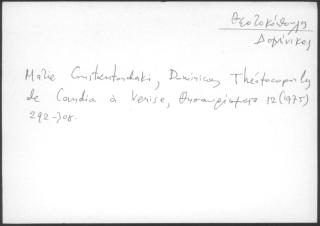 Θεοτοκόπουλος
Δομήνικος
Marie Constantoudaki, Dominicos Théotocopoulos
de Candia à Venise, Θησαυρίσματα 12 (1975)
292-308.